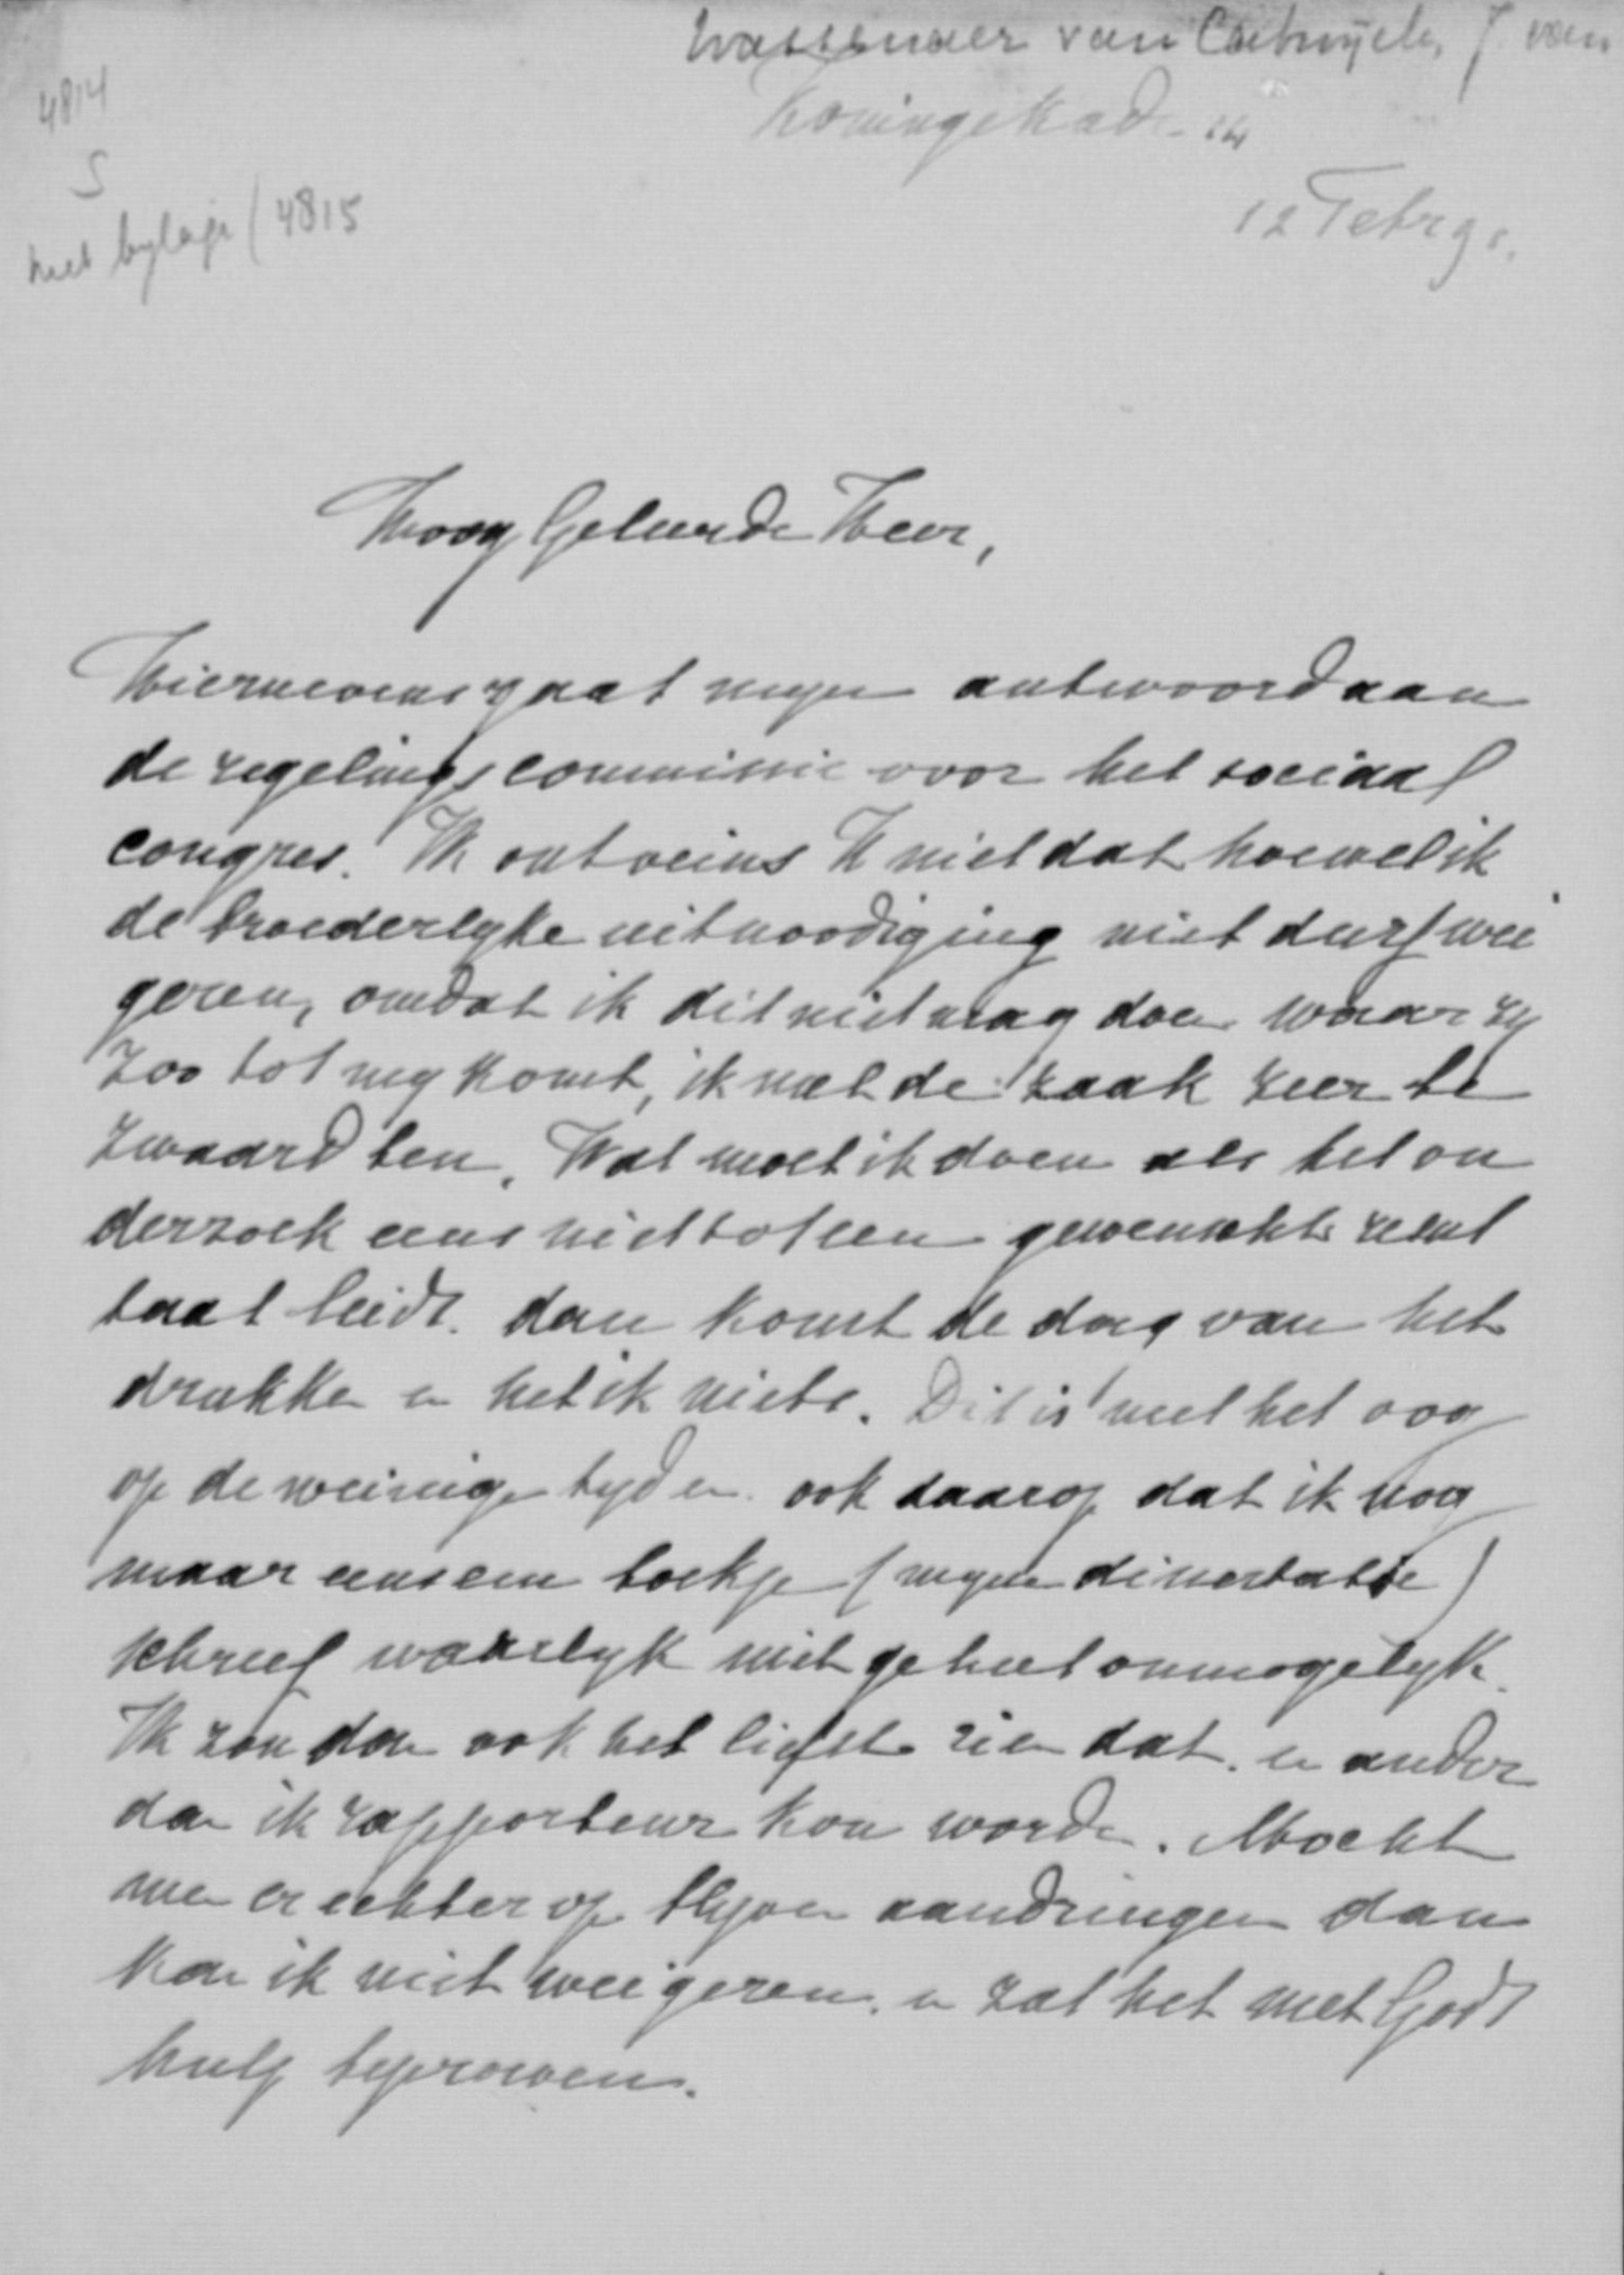 Wassenaer van Catwijck, J. van
Koningskade 14
4814
S
met bylage (4815
12 Febr 91.
Hoog Geleerde Heer,
Hiernevens gaat myn antwoord aan
de regelings commissie voor het sociaal
congres. Ik ontveins U niet dat hoewel ik
de broederlyke uitnoodiging niet durf wei
geren, omdat ik dit niet mag doen waar zy
zoo tot my komt, ik met de zaak zeer be
zwaard ben. Wat moet ik doen als het on
derzoek eens niet tot een gewenscht resul
taat leidt. dan komt de dag van het
drukken en heb ik niets. Dit is met het oog
op de weinige tyd en ook daarop dat ik nog
maar eens een boekje (myne dissertatie)
schreef waarlyk niet geheel onmogelyk.
Ik zou dan ook het liefst zien dat een ander
dan ik rapporteur kon worden. Mocht
men er echter op blyven aandringen dan
kan ik niet weigeren en zal het met Gods
hulp beproeven.